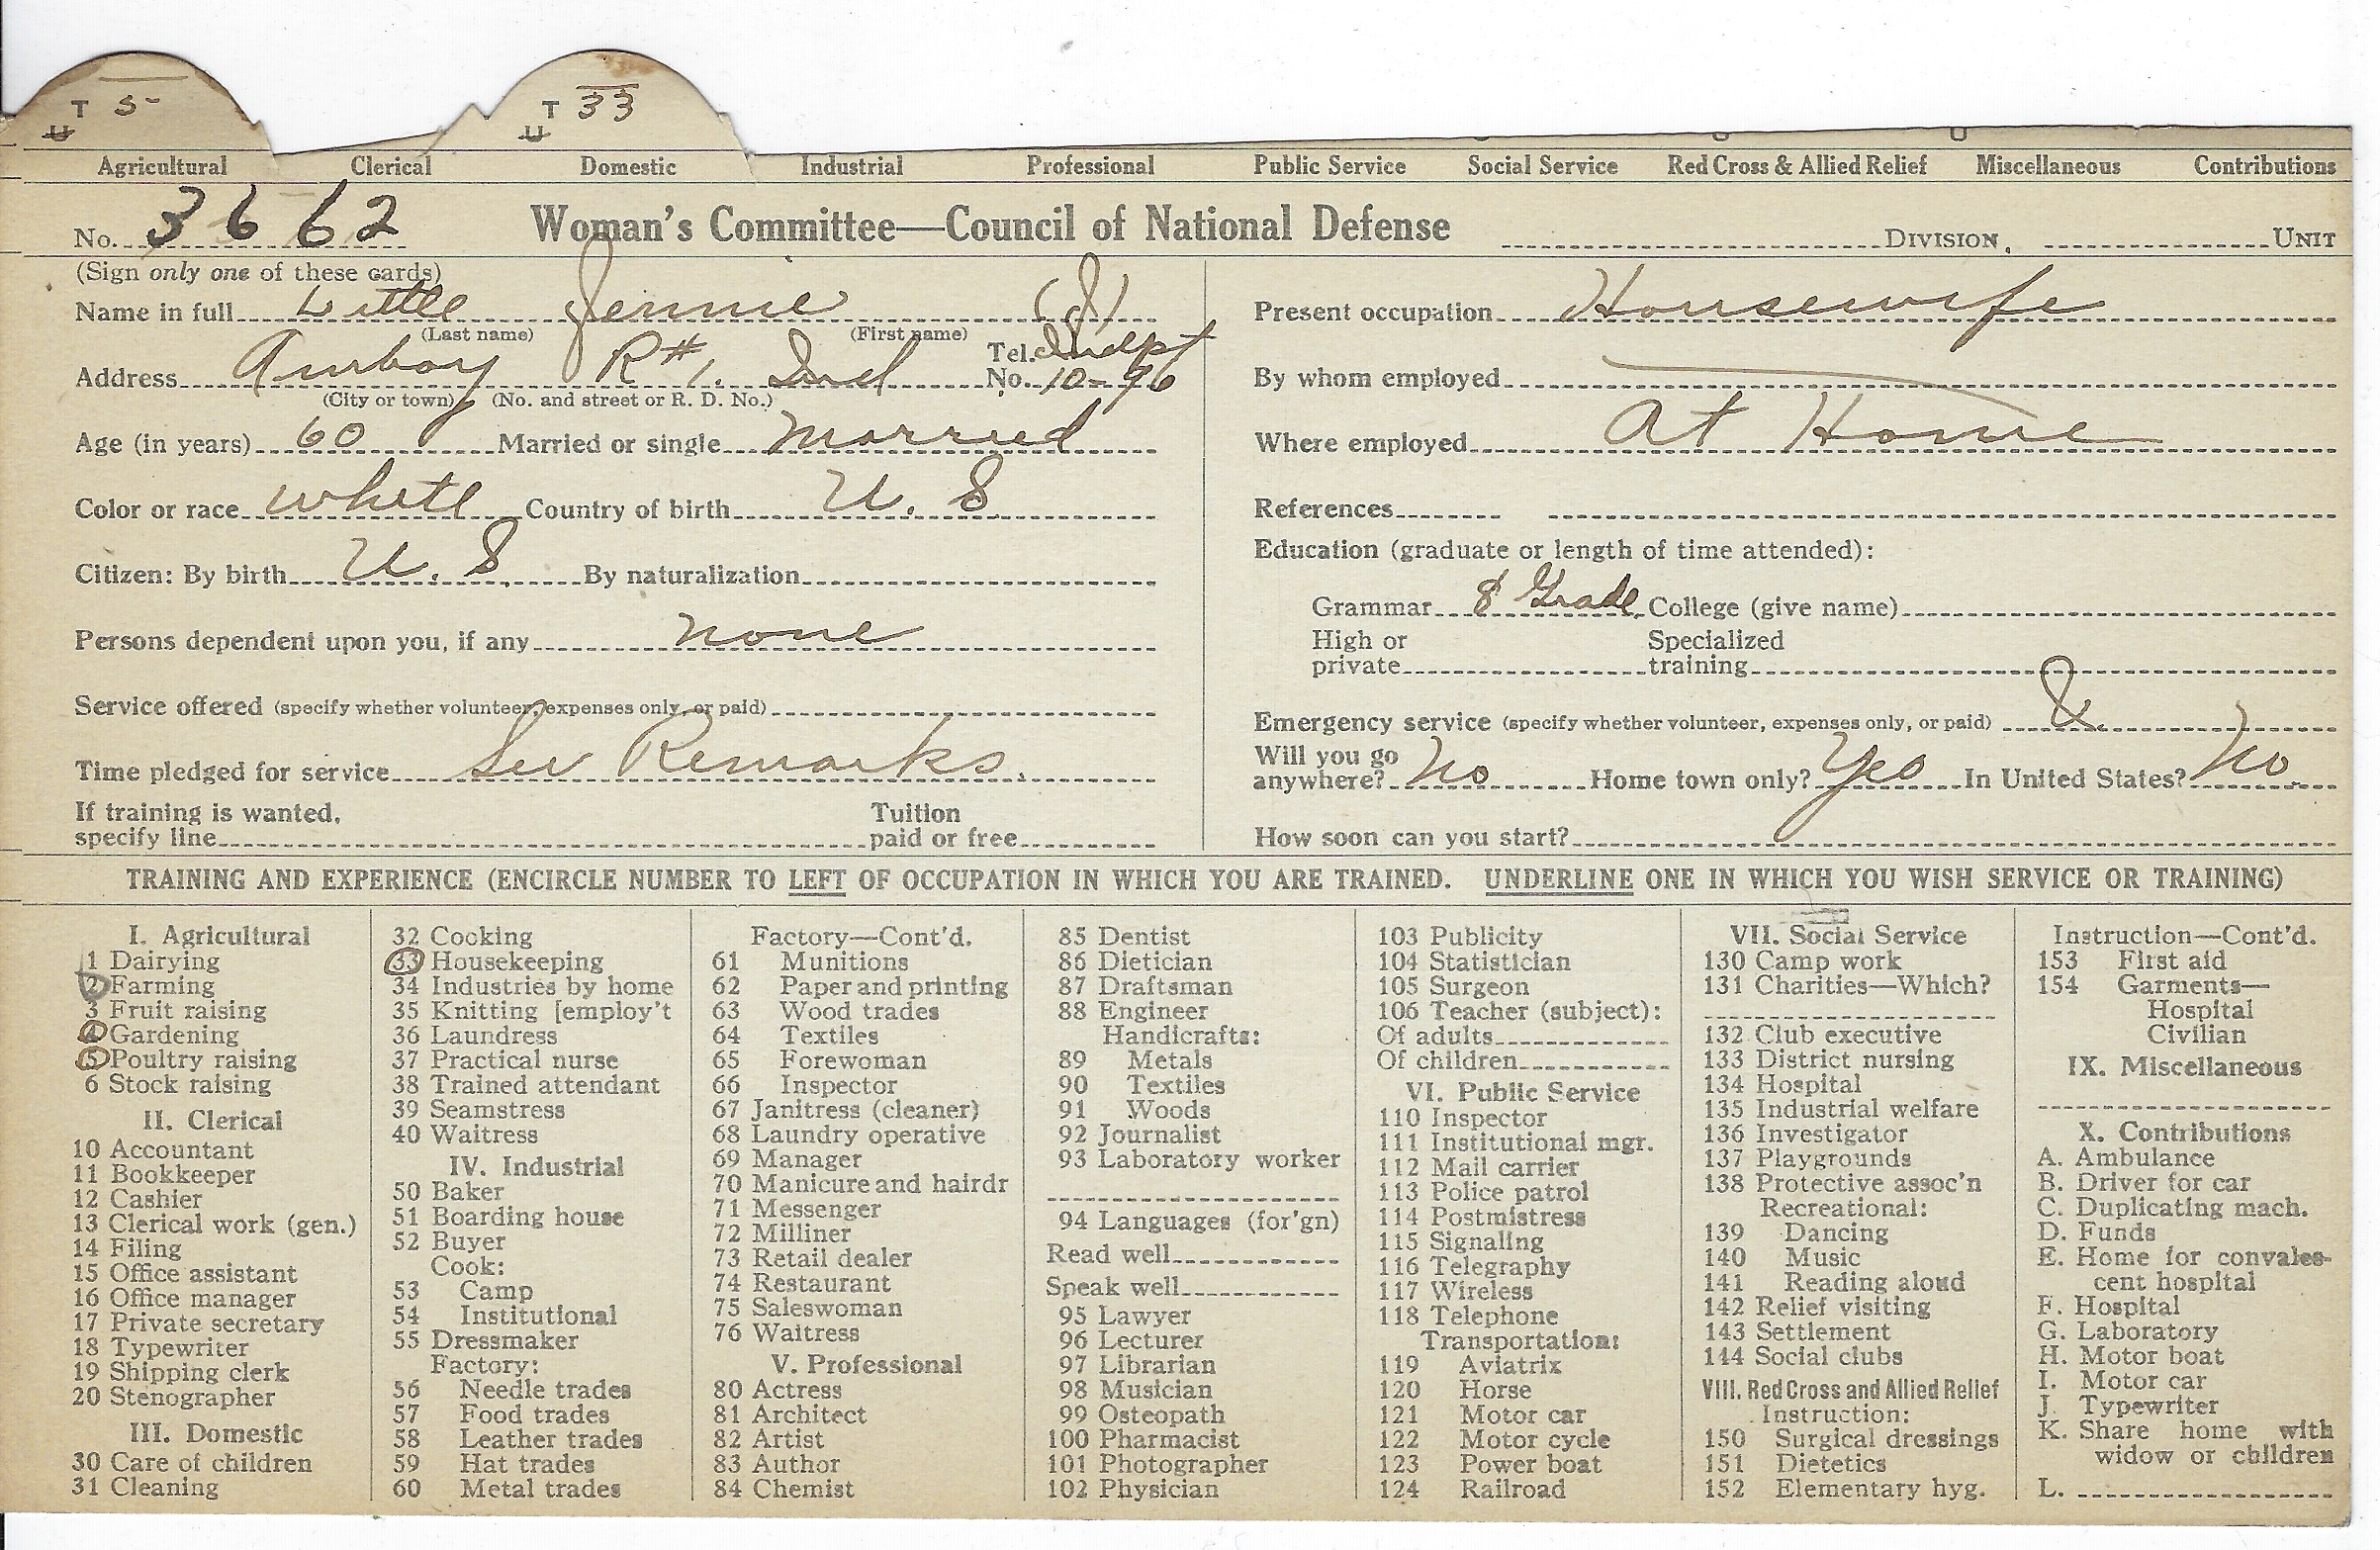 T 5 T 33
U U
Agricultural Clerical Domestic Industrial Professional Public Service Social Service Red Cross & Allied Relief Miscellaneous Contributions
No. 3662 Woman's Committee—Council of National Defense DIVISION, UNIT
(Sign only one of these cards)
Name in full Little Jennie (J)
(Last name) (First name)
Address Amboy R#1. Ind Tel. No. Indpt 10-96
(City or town) (No. and street or R. D. No.)
Age (in years) 60 Married or single Married
Color or race white Country of birth U. S
Citizen: By birth U. S. By naturalization
Persons dependent upon you, if any none
Service offered (specify whether volunteer, expenses only, or paid)
Time pledged for service See Remarks.
If training is wanted, specify line Tuition paid or free
Present occupation Housewife
By whom employed
Where employed At Home
References
Education (graduate or length of time attended):
Grammar 8 Grade College (give name)
High or private Specialized training
Emergency service (specify whether volunteer, expenses only, or paid)
Will you go anywhere? No Home town only? Yes In United States? No.
How soon can you start?
TRAINING AND EXPERIENCE (ENCIRCLE NUMBER TO LEFT OF OCCUPATION IN WHICH YOU ARE TRAINED. UNDERLINE ONE IN WHICH YOU WISH SERVICE OR TRAINING)
I. Agricultural
1 Dairying
2 Farming
3 Fruit raising
4 Gardening
5 Poultry raising
6 Stock raising
II. Clerical
10 Accountant
11 Bookkeeper
12 Cashier
13 Clerical work (gen.)
14 Filing
15 Office assistant
16 Office manager
17 Private secretary
18 Typewriter
19 Shipping clerk
20 Stenographer
III. Domestic
30 Care of children
31 Cleaning
32 Cooking
33 Housekeeping
34 Industries by home
35 Knitting [employ't
36 Laundress
37 Practical nurse
38 Trained attendant
39 Seamstress
40 Waitress
IV. Industrial
50 Baker
51 Boarding house
52 Buyer
Cook:
53 Camp
54 Institutional
55 Dressmaker
Factory:
56 Needle trades
57 Food trades
58 Leather trades
59 Hat trades
60 Metal trades
Factory—Cont'd.
61 Munitions
62 Paper and printing
63 Wood trades
64 Textiles
65 Forewoman
66 Inspector
67 Janitress (cleaner)
68 Laundry operative
69 Manager
70 Manicure and hairdr
71 Messenger
72 Milliner
73 Retail dealer
74 Restaurant
75 Saleswoman
76 Waitress
V. Professional
80 Actress
81 Architect
82 Artist
83 Author
84 Chemist
85 Dentist
86 Dietician
87 Draftsman
88 Engineer
Handicrafts:
89 Metals
90 Textiles
91 Woods
92 Journalist
93 Laboratory worker
94 Languages (for'gn)
Read well
Speak well
95 Lawyer
96 Lecturer
97 Librarian
98 Musician
99 Osteopath
100 Pharmacist
101 Photographer
102 Physician
103 Publicity
104 Statistician
105 Surgeon
106 Teacher (subject):
Of adults
Of children
VI. Public Service
110 Inspector
111 Institutional mgr.
112 Mail carrier
113 Police patrol
114 Postmistress
115 Signaling
116 Telegraphy
117 Wireless
118 Telephone
Transportation:
119 Aviatrix
120 Horse
121 Motor car
122 Motor cycle
123 Power boat
124 Railroad
VII. Social Service
130 Camp work
131 Charities—Which?
132 Club executive
133 District nursing
134 Hospital
135 Industrial welfare
136 Investigator
137 Playgrounds
138 Protective assoc'n
Recreational:
139 Dancing
140 Music
141 Reading aloud
142 Relief visiting
143 Settlement
144 Social clubs
VIII. Red Cross and Allied Relief
Instruction:
150 Surgical dressings
151 Dietetics
152 Elementary hyg.
Instruction—Cont'd.
153 First aid
154 Garments—
Hospital
Civilian
IX. Miscellaneous
X. Contributions
A. Ambulance
B. Driver for car
C. Duplicating mach.
D. Funds
E. Home for convales-
cent hospital
F. Hospital
G. Laboratory
H. Motor boat
I. Motor car
J. Typewriter
K. Share home with
widow or children
L.